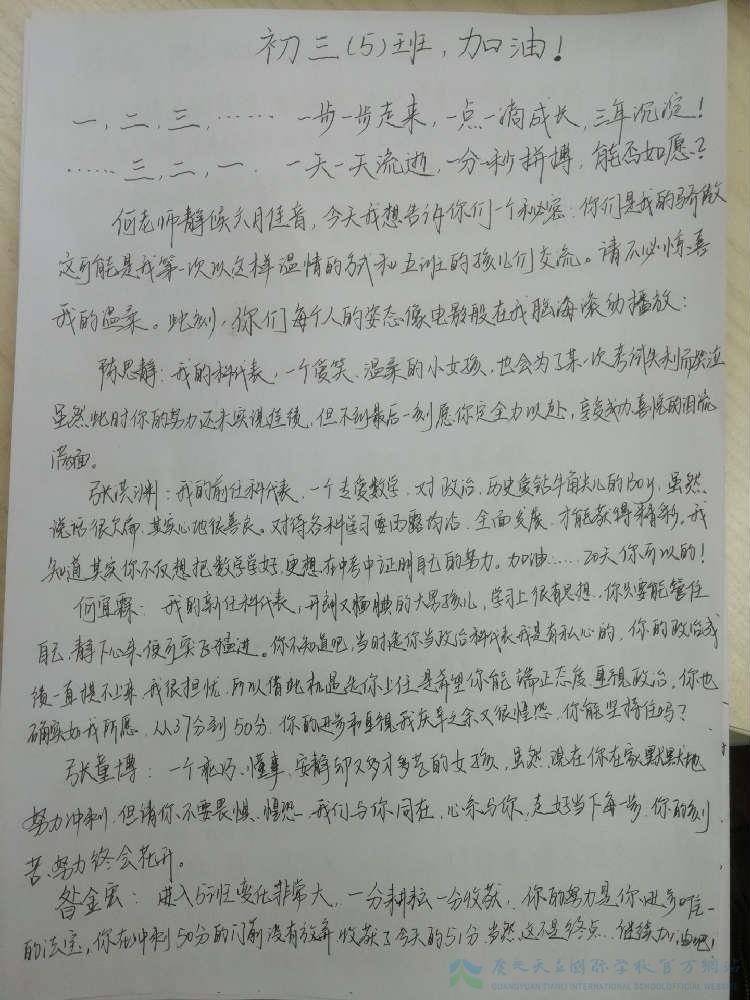 初三(5)班,加油!
一,二,三,…… 一步一步走来,一点一滴成长,三年沉淀!
…… 三,二,一. 一天一天流逝,一分一秒拼搏,能否如愿?
何老师静候六月佳音,今天我想告诉你们一个秘密:你们是我的骄傲
这可能是我第一次以这样温情的方式和五班的孩儿们交流。请不必惊喜
我的温柔。此刻,你们每个人的姿态像电影般在我脑海滚动播放:
陈思静:我的科代表,一个爱笑、温柔的小女孩,也会为了某一次考试失利而哭泣
虽然此时你的努力还未实现佳绩,但不到最后一刻愿你定全力以赴,享受成功喜悦的泪流
满面。
张洪渊:我的前任科代表,一个专爱数学,对政治,历史爱钻牛角尖儿的Boy,虽然
说话很欠扁,其实心地很善良。对待各科学习要雨露均沾,全面发展,才能获得精彩。我
知道其实你不仅想把数学学好,更想在中考中证明自己的努力。加油……20天你可以的!
何宜霖:我的新任科代表,开朗又腼腆的大男孩儿,学习上很有思想,你只要能管住
自己,静下心来便可突飞猛进。你不知道吧,当时选你当政治科代表我是有私心的,你的政治成
绩一直提不上来,我很担忧,所以借此机遇选你上任是希望你能端正态度重视政治,你也
确实如我所愿,从37分到50分,你的进步和重视我庆幸之余又很惶恐,你能坚持住吗?
张董博:一个乖巧、懂事、安静却又多才多艺的女孩,虽然,现在你在家默默地
努力冲刺,但请你不要畏惧、惶恐,我们与你同在,心系与你,走好当下每一步,你的刻
苦、努力终会花开。
昝金云:进入5班变化非常大,一分耕耘一分收获,你的努力是你进步唯一
的法宝,你在冲刺50分的门前没有放弃收获了今天的51分,当然这不是终点,继续加油吧!
广元天立国际学校官方网站
GUANGYUAN TIANLI INTERNATIONAL SCHOOL OFFICIAL WEBSITE